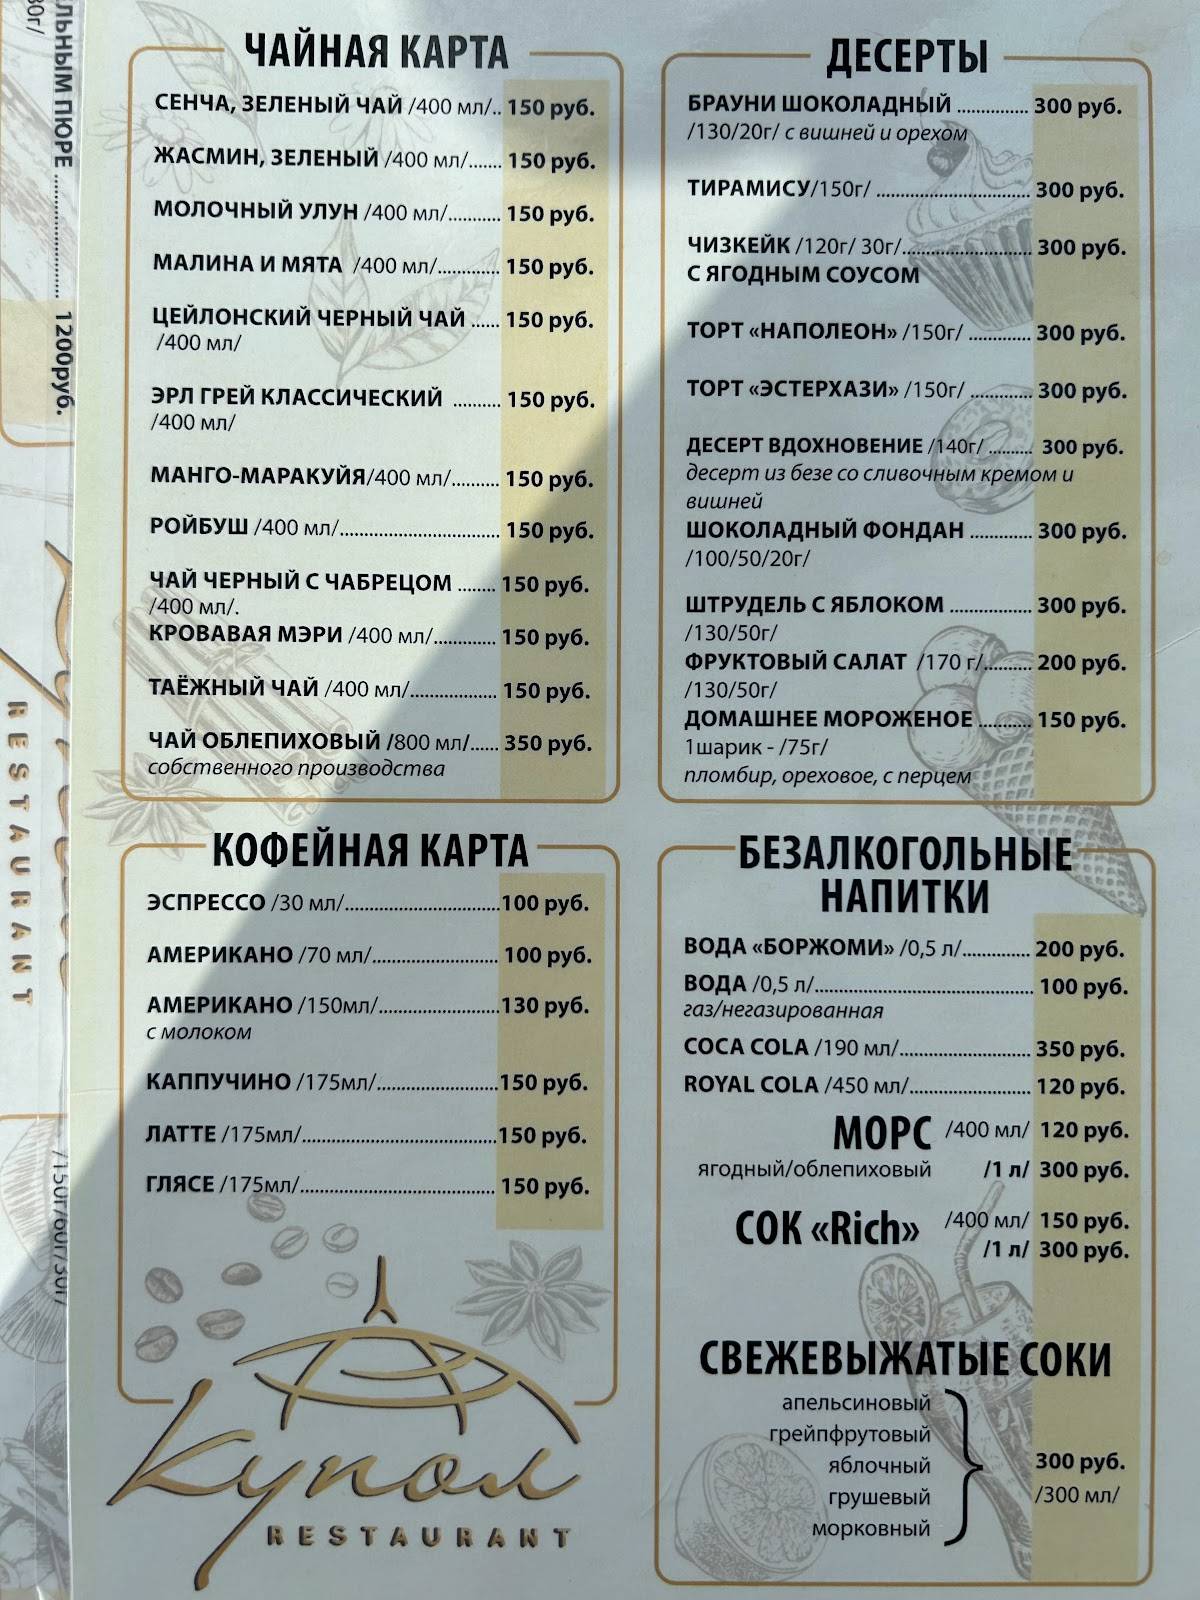 ЛЬНЫМ ПЮРЕ ........................ 1200руб.
30г/
/150г/60г/30г/
RESTAURANT
ЧАЙНАЯ КАРТА
СЕНЧА, ЗЕЛЕНЫЙ ЧАЙ /400 мл/.. 150 руб.
ЖАСМИН, ЗЕЛЕНЫЙ /400 мл/....... 150 руб.
МОЛОЧНЫЙ УЛУН /400 мл/........... 150 руб.
МАЛИНА И МЯТА /400 мл/............. 150 руб.
ЦЕЙЛОНСКИЙ ЧЕРНЫЙ ЧАЙ ...... 150 руб.
/400 мл/
ЭРЛ ГРЕЙ КЛАССИЧЕСКИЙ .......... 150 руб.
/400 мл/
МАНГО-МАРАКУЙЯ/400 мл/.......... 150 руб.
РОЙБУШ /400 мл/................................. 150 руб.
ЧАЙ ЧЕРНЫЙ С ЧАБРЕЦОМ ........ 150 руб.
/400 мл/.
КРОВАВАЯ МЭРИ /400 мл/............. 150 руб.
ТАЁЖНЫЙ ЧАЙ /400 мл/.................. 150 руб.
ЧАЙ ОБЛЕПИХОВЫЙ /800 мл/...... 350 руб.
собственного производства
КОФЕЙНАЯ КАРТА
ЭСПРЕССО /30 мл/................................100 руб.
АМЕРИКАНО /70 мл/.......................... 100 руб.
АМЕРИКАНО /150мл/.........................130 руб.
с молоком
КАППУЧИНО /175мл/.........................150 руб.
ЛАТТЕ /175мл/........................................150 руб.
ГЛЯСЕ /175мл/........................................ 150 руб.
Купол
RESTAURANT
ДЕСЕРТЫ
БРАУНИ ШОКОЛАДНЫЙ ............... 300 руб.
/130/20г/ с вишней и орехом
ТИРАМИСУ/150г/ ................................ 300 руб.
ЧИЗКЕЙК /120г/ 30г/........................... 300 руб.
С ЯГОДНЫМ СОУСОМ
ТОРТ «НАПОЛЕОН» /150г/ ............. 300 руб.
ТОРТ «ЭСТЕРХАЗИ» /150г/ .............. 300 руб.
ДЕСЕРТ ВДОХНОВЕНИЕ /140г/ ......... 300 руб.
десерт из безе со сливочным кремом и
вишней
ШОКОЛАДНЫЙ ФОНДАН ............. 300 руб.
/100/50/20г/
ШТРУДЕЛЬ С ЯБЛОКОМ ................. 300 руб.
/130/50г/
ФРУКТОВЫЙ САЛАТ /170 г/.......... 200 руб.
/130/50г/
ДОМАШНЕЕ МОРОЖЕНОЕ ........... 150 руб.
1шарик - /75г/
пломбир, ореховое, с перцем
БЕЗАЛКОГОЛЬНЫЕ
НАПИТКИ
ВОДА «БОРЖОМИ» /0,5 л/.............. 200 руб.
ВОДА /0,5 л/............................................. 100 руб.
газ/негазированная
COCA COLA /190 мл/........................... 350 руб.
ROYAL COLA /450 мл/......................... 120 руб.
МОРС /400 мл/ 120 руб.
ягодный/облепиховый /1 л/ 300 руб.
СОК «Rich» /400 мл/ 150 руб.
/1 л/ 300 руб.
СВЕЖЕВЫЖАТЫЕ СОКИ
апельсиновый
грейпфрутовый
яблочный 300 руб.
грушевый /300 мл/
морковный